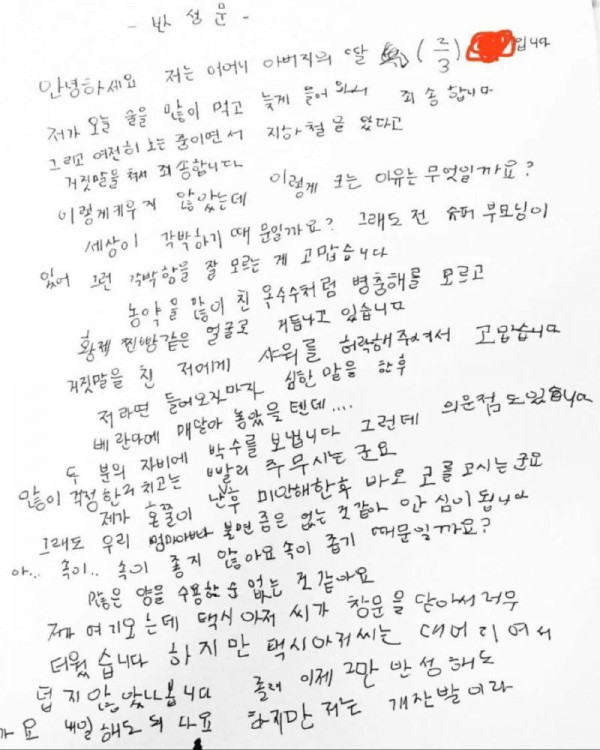 - 반 성 문 -
안녕하세요 저는 어머니 아버지의 딸 (2/3) 입니다
저가 오늘 술을 많이 먹고 늦게 들어와서 죄송합니다
그리고 여전히 노는 중이면서 지하철을 탔다고
거짓말을 쳐서 죄송합니다
이렇게 키우지 않았는데 이렇게 크는 이유는 무엇일까요?
세상이 각박하기 때문일까요? 그래도 전 슈퍼 부모님이
있어 그런 각박함을 잘 모르는 게 고맙습니다
농약을 많이 친 옥수수처럼 병충해를 모르고
황제 찐빵같은 얼굴로 거듭나고 있습니다
거짓말을 친 저에게 샤워를 허락해주셔서 고맙습니다
저라면 들어오자마자 심한 말을 한후
베란다에 매달아 놓았을 텐데....
두 분의 자비에 박수를 보냅니다 그런데 의문점도 있습니다
많이 걱정한거 치고는 빨리 주무시는군요
제가 혼꿀이 난후 미안해한후 바로 코를 고시는군요
그래도 우리 엄마아빠 불면증은 없는 것같아 안심이 됩니다
아... 속이.. 속이 좋지 않아요 속이 좁기 때문일까요?
많은 양을 수용할 순 없는 것 같아요
저가 여기오는데 택시아저씨가 창문을 닫아서 너무
더웠습니다 하지만 택시아저씨는 대머리여서
덥지않았나봅니다 졸려 이제 그만 반성해도
요 내일해도 되나요 하지만 저는 개잔발이라